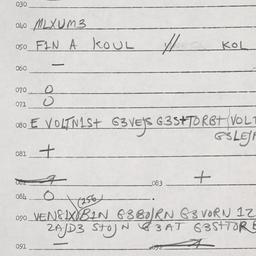 030
040 MLXUM3
050 FIN A KOUL // KOL
060 —
070 O
071 O
080 E VOLTNIST G3VEJS G3STTORBT (VOLT
G3LEJ
081 +
082 083 +
084 O
(256)
090 VENEIX/BIN G3BOJRN G3VORN 12
2AJD3 STOJN G3AT G3STTOR
091 —